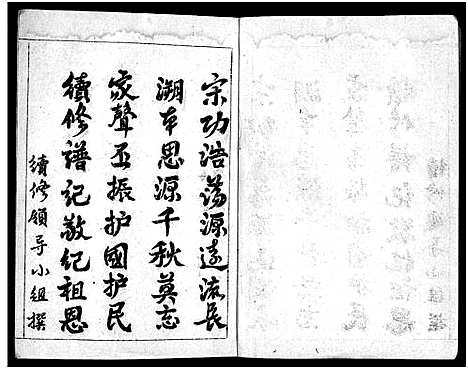 宗功浩荡源远流长
溯本思源千秋莫忘
家聲丕振护國护民
續修谱记敬纪祖恩
續修领导小组撰